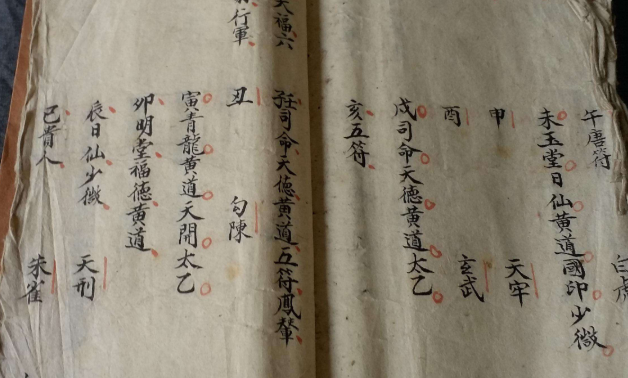 午唐符 白虎
未玉堂日仙黃道國印少微
申 天牢
酉 玄武
戌司命天德黃道太乙
亥五符
天福六 司命天德黃道五符鳳輦
行軍 丑 句陳
寅青龍黃道天開太乙
卯明堂福德黃道
辰日仙少微 天刑
巳貴人 朱雀